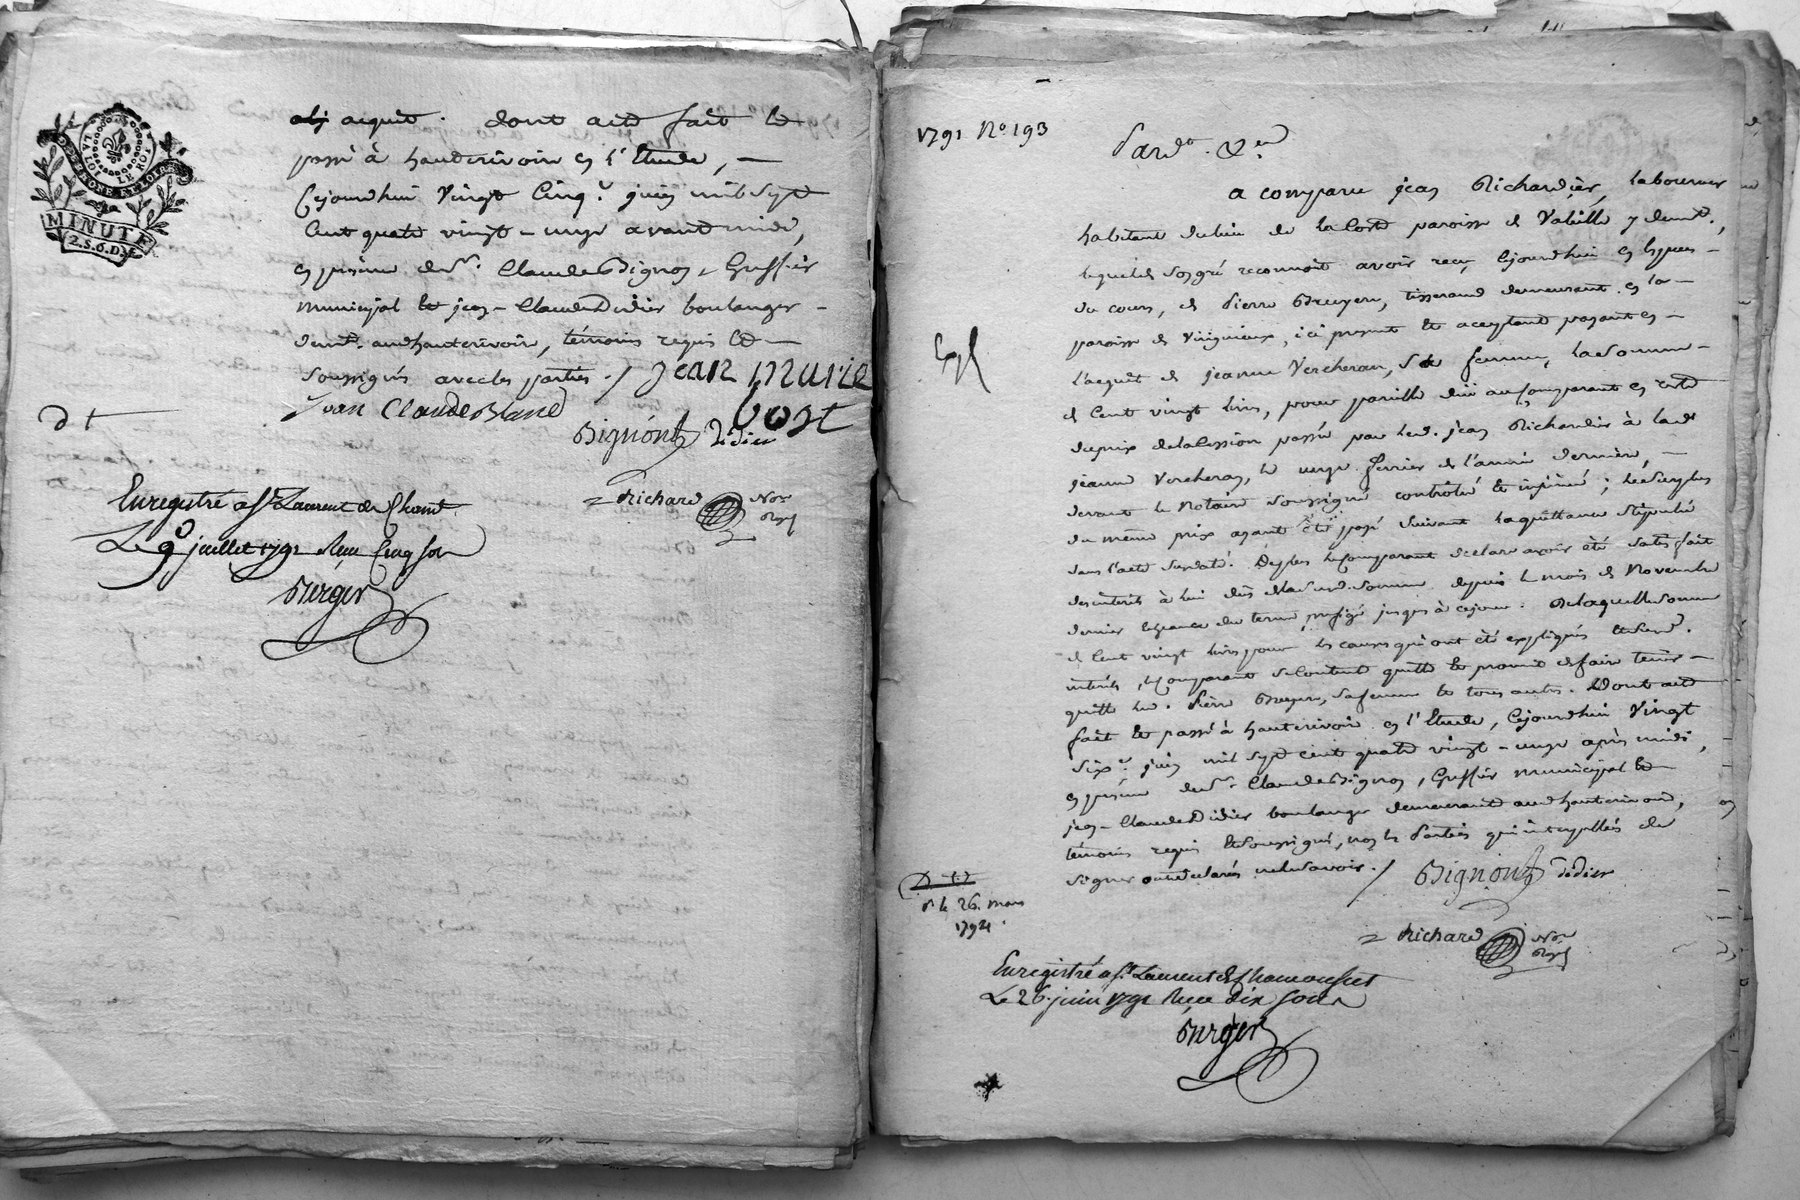 LA LOI LE ROI
DEP. RHONE ET LOIRE
MINUTE
2.S.6.D.
acquit. dont acte fait et
passé à hauterivoire en l'Etude,
Cejourdhui Vingt Cinq.e juin mil Sept
Cent quatre vingt-unze avant midi,
en présence de Sr. Claude Bignon, Greffier
municipal et jean-Claude Didier boulanger
demt. audhauterivoire, témoins requis et
Soussignés avec les parties. / Jean Marie
Jean Claude Blanc Vost
Bignont Didier
dt
Richard Nore Royl
Enregistré a St Laurent de Cham.
Le 9 juillet 1791 Reçu Cinq sols
Berger
1791 No 193
Pard.
a comparu jean Richardier, laboureur
habitant du lieu de la Coste paroisse de Valeille y demt.,
lequel de Son gré reconnoit avoir reçu Cejourdhui en Espèces
du cours, de Pierre Bruyere, tisserand demeurant en la
paroisse de Virigneux, ici présent et acceptant payant en
l'acquit de jeanne Vercheran, Sa femme, la Somme
de Cent vingt livres, pour pareille due au Comparant en reste
du prix de la Cession passée par led. jean Richardier à lade
jeanne Vercheran, le unze fevrier de l'année dernière,
devant le Notaire Soussigné contrôlé et insinué; le Surplus
du même prix ayant été payé Suivant la quittance Stipulée
dans l'acte Susdaté. De plus le Comparant déclare avoir été Satisfait
des intérêts à lui dûs de lad Somme depuis le mois de Novembre
dernier Echeance du terme prefigé jusques à cejour. De laquelle Somme
de Cent vingt livres pour les causes qui ont été expliquées
intérêts, le Comparant Se Contente quitte et promet de faire tenir
quitte led. Pierre Bruyere, Sa femme et tous autres. Dont acte
fait et passé à hauterivoire en l'Etude, Cejourdhui Vingt
Six.e juin mil Sept cent quatre vingt-unze après midi,
en présence de Sr. Claude Bignon, Greffier municipal et
jean-Claude Didier boulanger demeurants aud hauterivoire,
témoins requis et Soussignés, non les Parties qui interpellées de
Signer ont déclarés ne le Savoir. / Bignont Didier
Expl
le 26. mars
Richard Nore Royl
Enregistré a St Laurent de Chamousset
Le 26. juin 1791 Reçu dix Sous
Berger